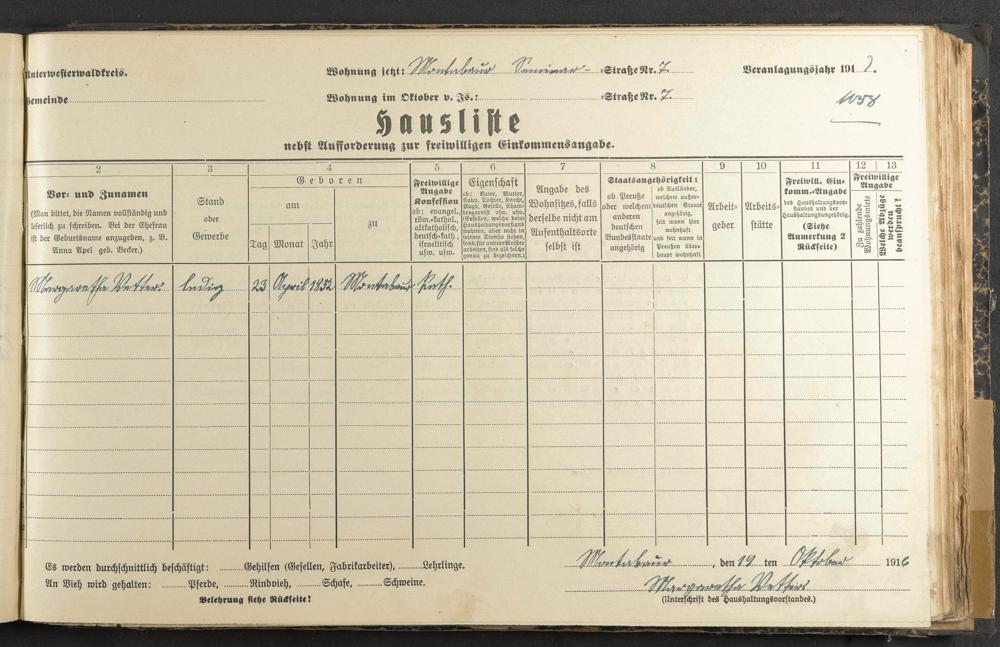 Unterwesterwaldkreis. Wohnung jetzt: Montabaur Seminar- Straße Nr. 7. Veranlagungsjahr 191
Gemeinde Wohnung im Oktober v. Js.: Straße Nr. 7. 1058
Hausliste
nebst Aufforderung zur freiwilligen Einkommensangabe.
2 3 4 5 6 7 8 9 10 11 12 13
Vor- und Zunamen
(Man bittet, die Namen vollständig und
leserlich zu schreiben. Bei der Ehefrau
ist der Geburtsname anzugeben, z. B.
Anna Apel geb. Becker.)
Stand
oder
Gewerbe
Geboren
am
Tag Monat Jahr
zu
Freiwillige
Angabe
Konfession
ob: evangel.,
röm.-kathol.,
altkatholisch,
deutsch-kath.,
israelitisch
usw. usw.
Eigenschaft
ob: Vater, Mutter,
Sohn, Tochter, Knecht,
Magd, Geselle, Cham-
bregarnist usw. usw.
(Gesellen, welche beim
Haushaltungsvorstand
wohnen, aber nicht in
seinem Dienste stehen,
sond. für andere Meister
arbeiten, sind als solche
genau zu bezeichnen.)
Angabe des
Wohnsitzes, falls
derselbe nicht am
Aufenthaltsorte
selbst ist
Staatsangehörigkeit:
ob Preuße
oder welchem
anderen
deutschen
Bundesstaate
angehörig
ob Ausländer,
welchem außer-
deutschen Staate
angehörig,
seit wann hier
wohnhaft
und seit wann in
Preußen über-
haupt wohnhaft
Arbeit-
geber
Arbeits-
stätte
Freiwill. Ein-
komm.-Angabe
des Haushaltungsvor-
standes und der
Haushaltungsangehörig.
(Siehe
Anmerkung 2
Rückseite)
Freiwillige
Angabe
Zu zahlende
Wohnungsmiete
Welche Abzüge
werden
beansprucht?
Margaretha Vetter ledig 23 April 1852 Montabaur kath.
Es werden durchschnittlich beschäftigt: Gehilfen (Gesellen, Fabrikarbeiter), Lehrlinge.
An Vieh wird gehalten: Pferde, Rindvieh, Schafe, Schweine.
Belehrung siehe Rückseite!
Montabaur, den 19 ten Oktober 1916
Margaretha Vetter
(Unterschrift des Haushaltungsvorstandes.)